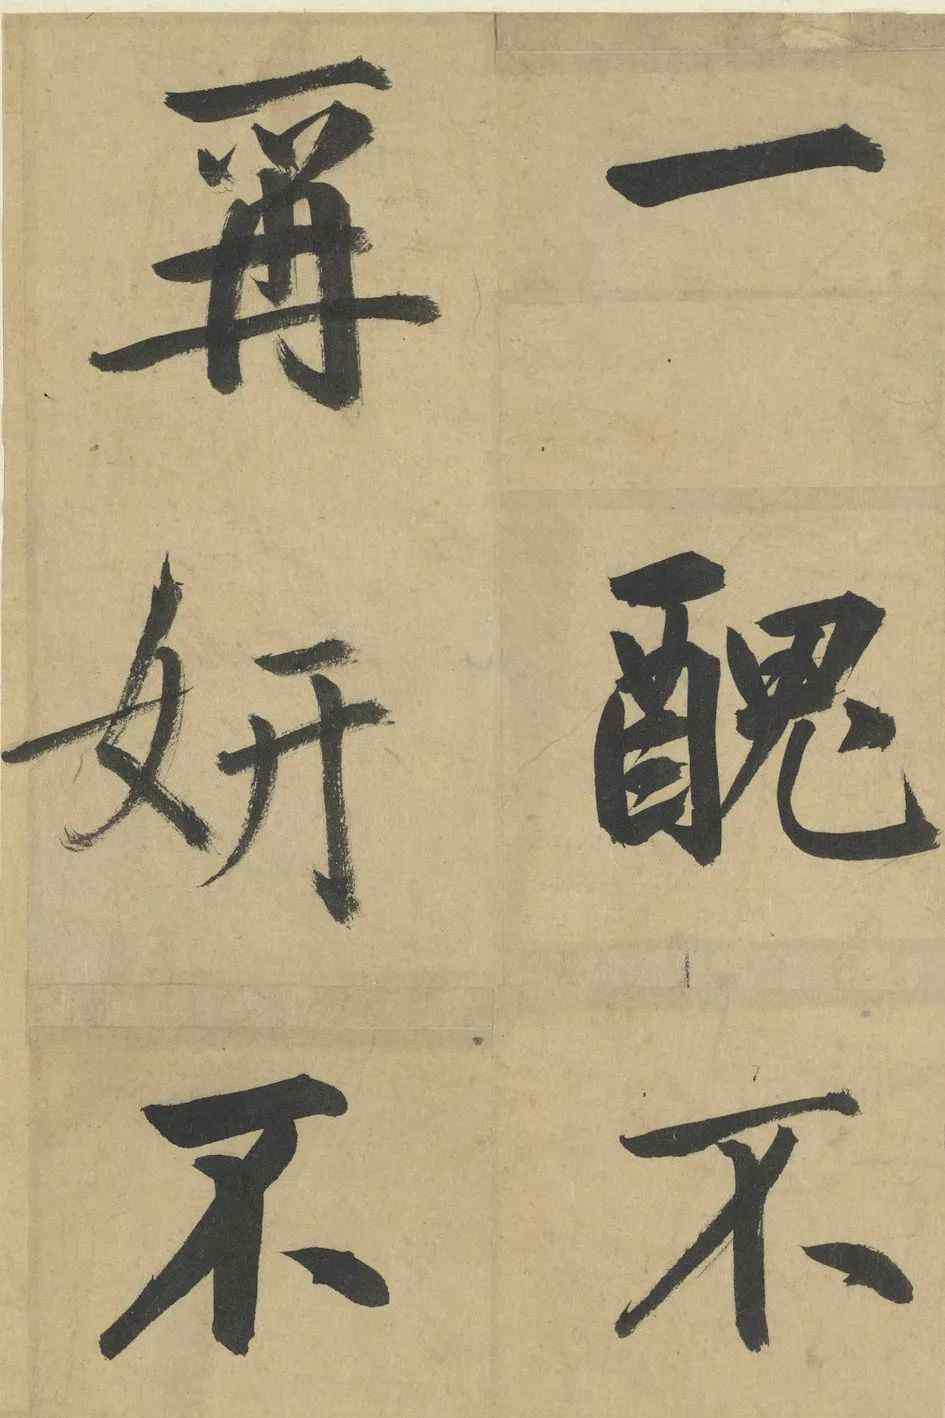 一醜不
再妍不